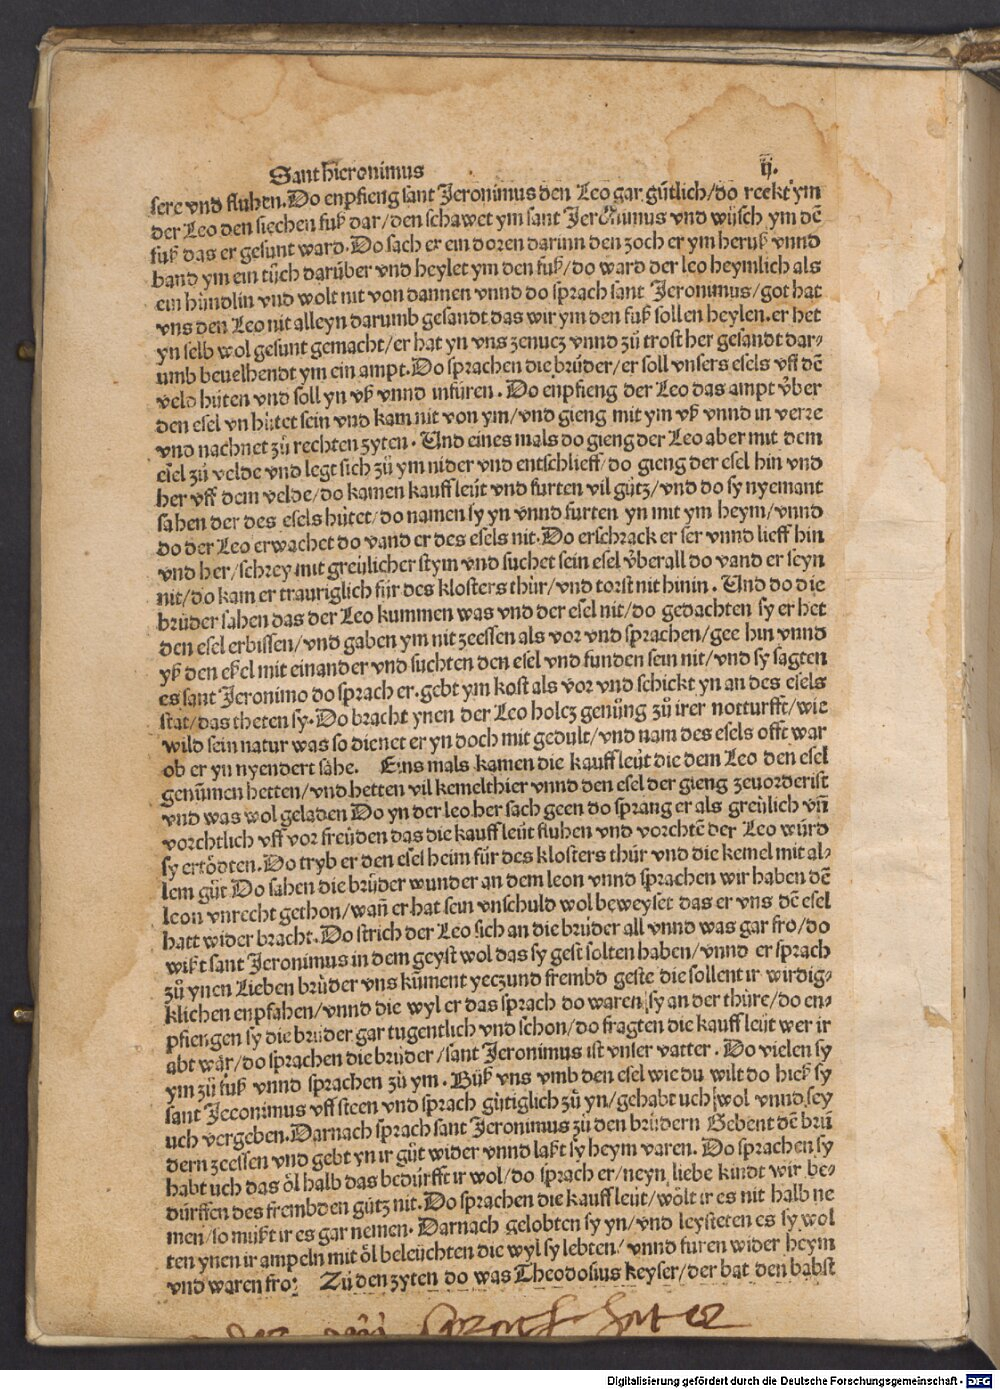 Sant hieronimus ij.
sere vnd fluhen. Do enpfieng sant Jeronimus den Leo gar gůtlich/do reckt ym
der Leo den siechen fuß dar/den schawet ym sant Jeronimus vnd wůsch ym dē
fuß das er gesunt ward. Do sach er ein doren darinn den zoch er ym heruß vnnd
band ym ein tůch darüber vnd heylet ym den fuß/do ward der leo heymlich als
ein hündlin vnd wolt nit von dannen vnnd do sprach sant Jeronimus/got hat
vns den Leo nit alleyn darumb gesandt das wir ym den fuß sollen heylen. er het
yn selb wol gesunt gemacht/er hat yn vns zenucz vnnd zů trost her gesandt dar-
umb beuelhendt ym ein ampt. Do sprachen die brüder/er soll vnsers esels vff dē
veld hüten vnd soll yn vß vnnd infüren. Do enpfieng der Leo das ampt vber
den esel vn hütet sein vnd kam nit von ym/vnd gieng mit ym vß vnnd in verre
vnd nachnet zů rechten zyten. Und eines mals do gieng der Leo aber mit dem
esel zů velde vnd legt sich zů ym nider vnd entschlieff/do gieng der esel hin vnd
her vff dem velde/do kamen kauffleüt vnd furten vil gůtz/vnd do sy nyemant
sahen der des esels hütet/do namen sy yn vnnd furten yn mit ym heym/vnnd
do der Leo erwachet do vand er des esels nit. Do erschrack er ser vnnd lieff hin
vnd her/schrey mit greülicher stym vnd suchet sein esel vberall do vand er seyn
nit/do kam er trauriglich für des klosters thür/vnd torst nit hinin. Und do die
brüder sahen das der Leo kummen was vnd der esel nit/do gedachten sy er het
den esel erbissen/vnd gaben ym nit zeessen als vor vnd sprachen/gee hin vnnd
yß den eßel mit einander vnd suchten den esel vnd funden sein nit/vnd sy sagten
es sant Jeronimo do sprach er. gebt ym kost als vor vnd schickt yn an des esels
stat/das theten sy. Do bracht ynen der Leo holcz genůng zů irer notturfft/wie
wild sein natur was so dienet er yn doch mit gedult/vnd nam des esels offt war
ob er yn nyendert sahe. Eins mals kamen die kauffleüt die dem Leo den esel
genūmen hetten/vnd hetten vil kemelthier vnnd den esel der gieng zeuorderist
vnd was wol geladen Do yn der leo her sach geen do sprang er als greülich vñ
vorchtlich vff vor freüden das die kauffleüt fluhen vnd vorchtē der Leo würd
sy ertödten. Do tryb er den esel heim für des klosters thür vnd die kemel mit al-
lem gůt Do sahen die brüder wunder an dem leon vnnd sprachen wir haben dē
leon vnrecht gethon/wañ er hat sein vnschuld wol beweyset das er vns dē esel
hatt wider bracht. Do strich der Leo sich an die brüder all vnnd was gar fro/do
wißt sant Jeronimus in dem geyst wol das sy gest solten haben/vnnd er sprach
zů ynen Lieben brüder vns kūment yeczund frembd geste die sollent ir wirdig-
klichen enpfahen/vnnd die wyl er das sprach do waren sy an der thüre/do en-
pfiengen sy die brüder gar tugentlich vnd schon/do fragten die kauffleüt wer ir
abt wär/do sprachen die brüder/sant Jeronimus ist vnser vatter. Do vielen sy
ym zů fuß vnnd sprachen zů ym. Büß vns vmb den esel wie du wilt do hieß sy
sant Jeconimus vff steen vnd sprach gütiglich zů yn/gehabt uch wol vnnd sey
uch vergeben. Darnach sprach sant Jeronimus zů den brüdern Gebent dē brü
dern zeessen vnd gebt yn ir gůt wider vnnd laßt sy heym varen. Do sprachen sy
habt uch das öl halb das bedürfft ir wol/do sprach er/neyn liebe kindt wir be-
dürffen des frembden gůtz nit. Do sprachen die kauffleüt/wölt ir es nit halb ne
men/so müßt ir es gar nemen. Darnach gelobten sy yn/vnd leysteten es sy wol
ten ynen ir ampeln mit öl beleüchten die wyl sy lebten/vnnd furen wider heym
vnd waren fro: Zů den zyten do was Theodosius keyser/der bat den babst
Digitalisierung gefördert durch die Deutsche Forschungsgemeinschaft - DFG